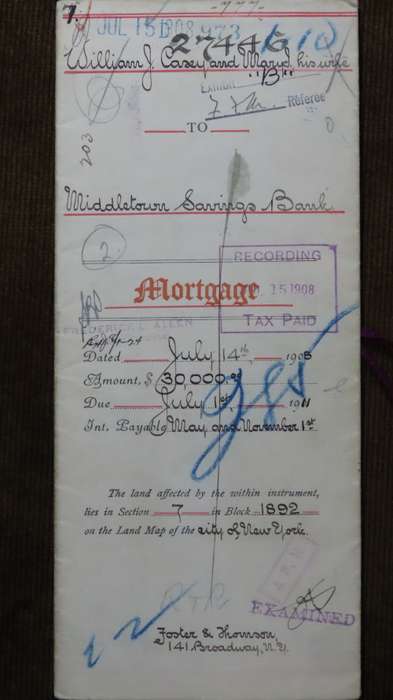 7.
-777-
JUL 15 1908 973
27446
William J. Casey and Mary J. his wife
Exhibit "B"
Referee
TO
203
Middletown Savings Bank
2
RECORDING
15 1908
TAX PAID
Mortgage
FREDERICK L. ALLEN
Dated July 14th, 1908
Amount, $30,000.00
Due July 1st, 1911
Int. Payable May and November 1st
The land affected by the within instrument,
lies in Section 7 in Block 1892
on the Land Map of the City of New York.
EXAMINED
Foster & Thomson,
141 Broadway, N.Y.